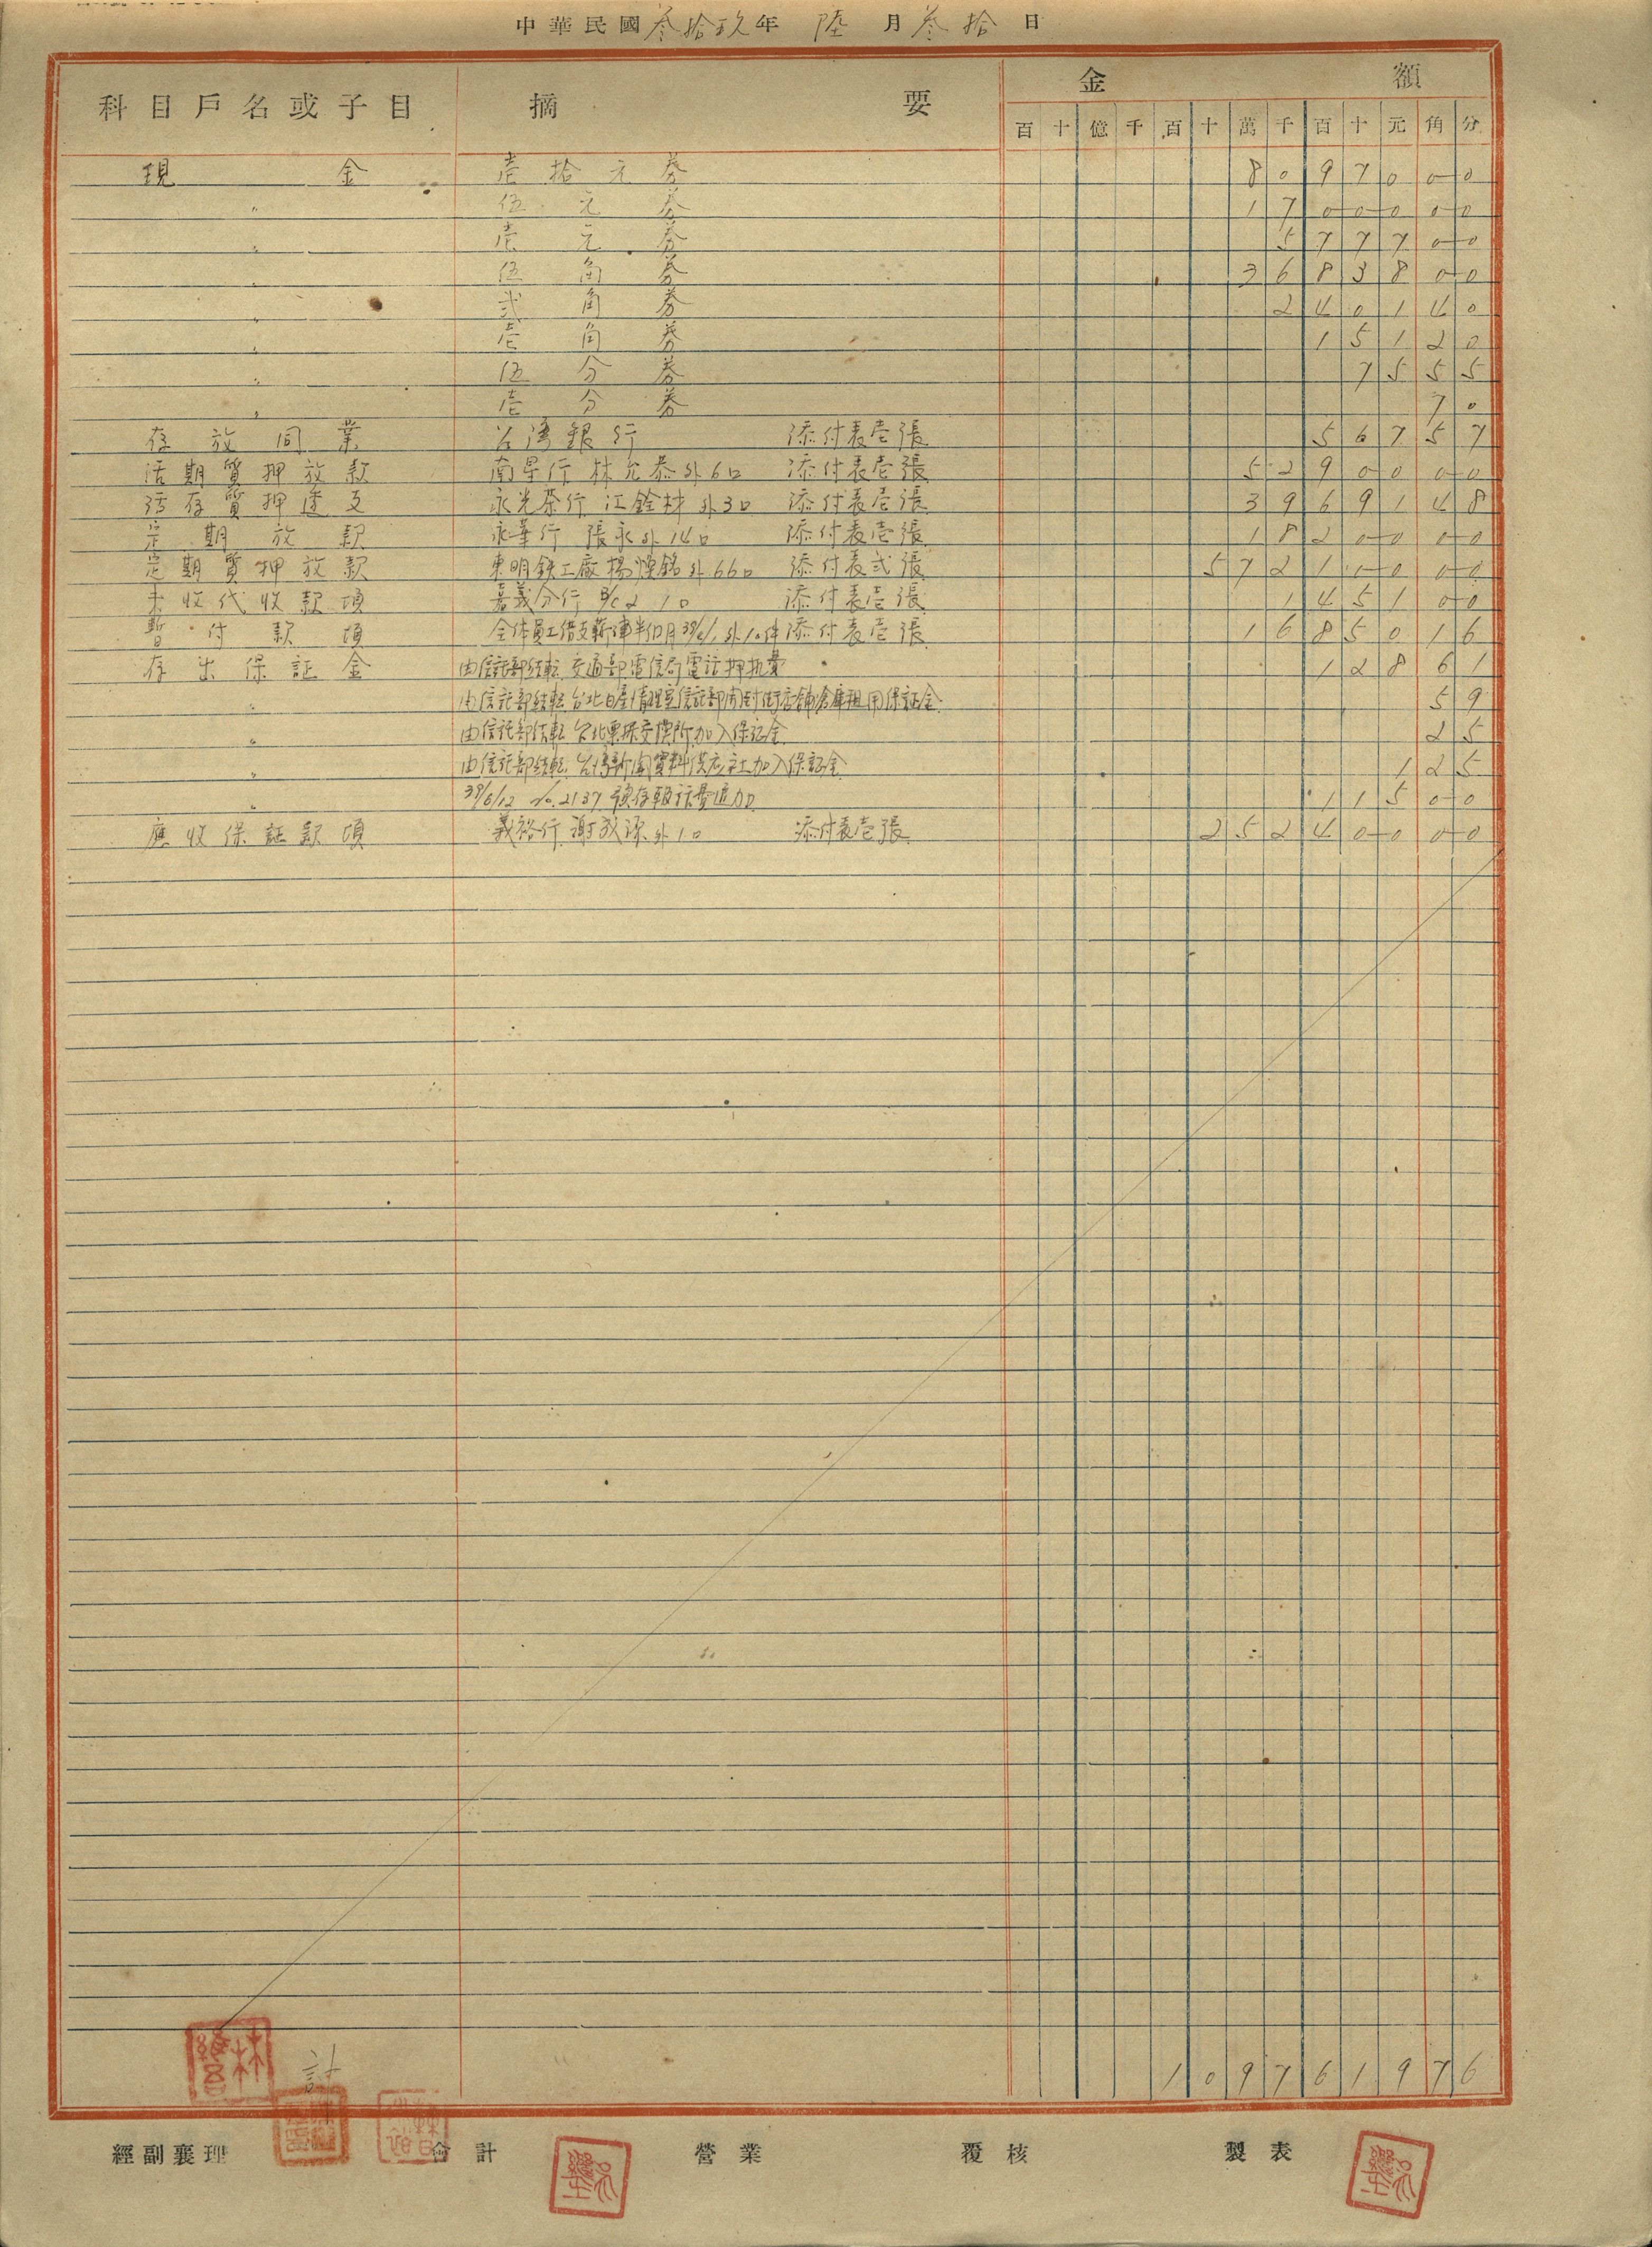 中華民國叁拾玖年 陸 月叁拾 日
科目戶名或子目 摘要 金額
百十億千百十萬千百十元角分
現金 壱拾元券 8097000
〃 伍元券 1700000
〃 壱元券 577700
〃 伍角券 3683800
〃 弍角券 240140
〃 壱角券 15120
〃 伍分券 7555
〃 壱分券 70
存放同業 台湾銀行 添付表壱張 56757
活期質押放款 南星行 林允恭外6口 添付表壱張 5290000
活存質押透支 永光茶行 江銓材外3口 添付表壱張 3969148
定期放款 永華行 張永外14口 添付表壱張 1820000
定期質押放款 東明鉄工廠 楊 銘外66口 添付表弍張 57210000
未收代收款項 嘉義分行 B/C 2 1口 添付表壱張 145100
暫付款項 全体員工借支薪津半個月 外10件 添付表壱張 1685016
存出保証金 由信託部結転 交通部電信局電話押机費 12861
〃 由信託部結転 台北日産清理室信託部開封街店舗倉庫租用保証金 59
〃 由信託部結転 台北票據交換所加入保証金 25
〃 由信託部結転 台湾新聞資料供应社加入保証金 125
〃 39/6/12 No.2137 11500
應收保証款項 義裕行 謝成源外1口 添付表壱張 25240000
計 109761976
經副襄理 會計 營業 覆核 製表